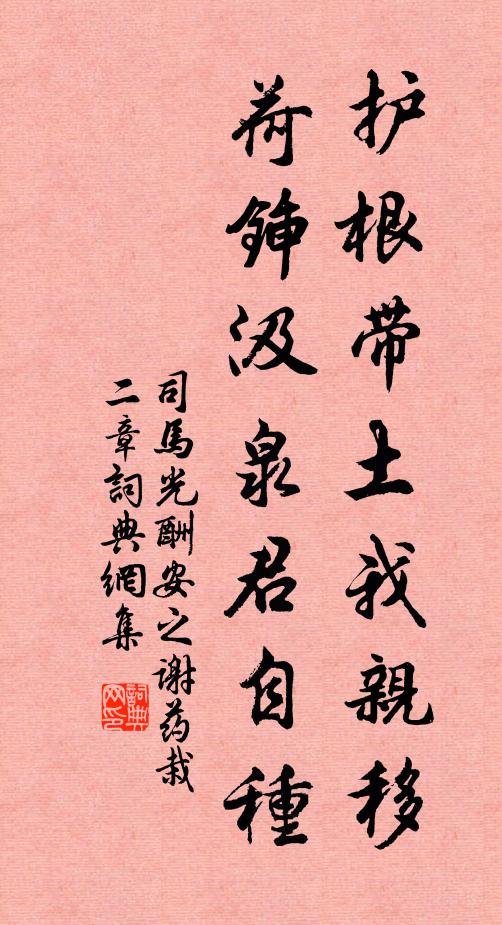 护根带土我親移
荷鍤汲泉君自種
司馬光酬安之谢药栽
二章詞典網集
詞典网印